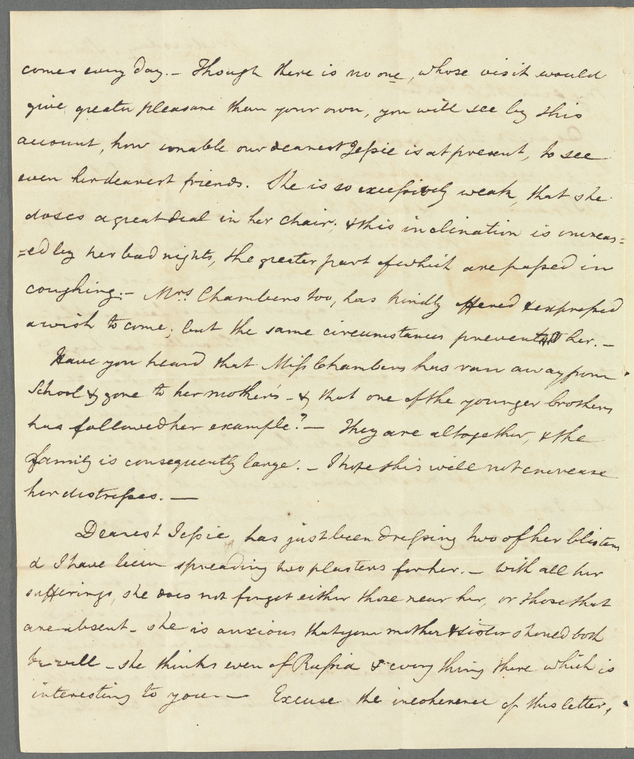 comes every day. – Though there is no one, whose visit would
give greater pleasure than your own, you will see by this
account, how unable our dearest Jessie is at present, to see
even her dearest friends. She is so excessively weak, that she
doses a great deal in her chair. & this inclination is increas=
=ed by her bad nights, the greater part of which are passed in
coughing. – Mrs. Chambers too, has kindly offered & expressed
a wish to come; but the same circumstances prevent her. –
Have you heard that Miss Chambers has run away from
School & gone to her mother's – & that one of the younger brothers
has followed her example? – They are altogether, & the
family is consequently large. – I hope this will not encrease
her distresses. —
Dearest Jessie, has just been dressing two of her blisters
d I have been spreading two plasters for her. – With all her
sufferings, she does not forget either those near her, or those that
are absent – she is anxious that your mother & sister should both
be well – she thinks even of Russia & every thing there which is
interesting to you. — Excuse the incoherence of this letter,